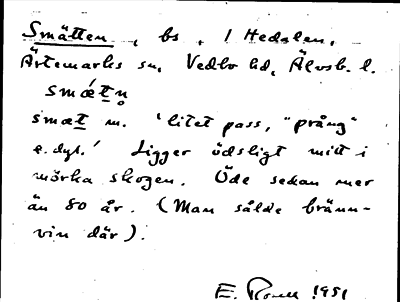 Smätten, bs, i Hedalen,
Ärtemarks sn, Vedbo hd, Älvsb. l.
smǽtn̥
smæt m. 'litet pass, "prång"
e.dyl.' Ligger ödsligt mitt i
mörka skogen. Öde sedan mer
än 80 år. (Man sålde bränn-
vin där).
E. 1951